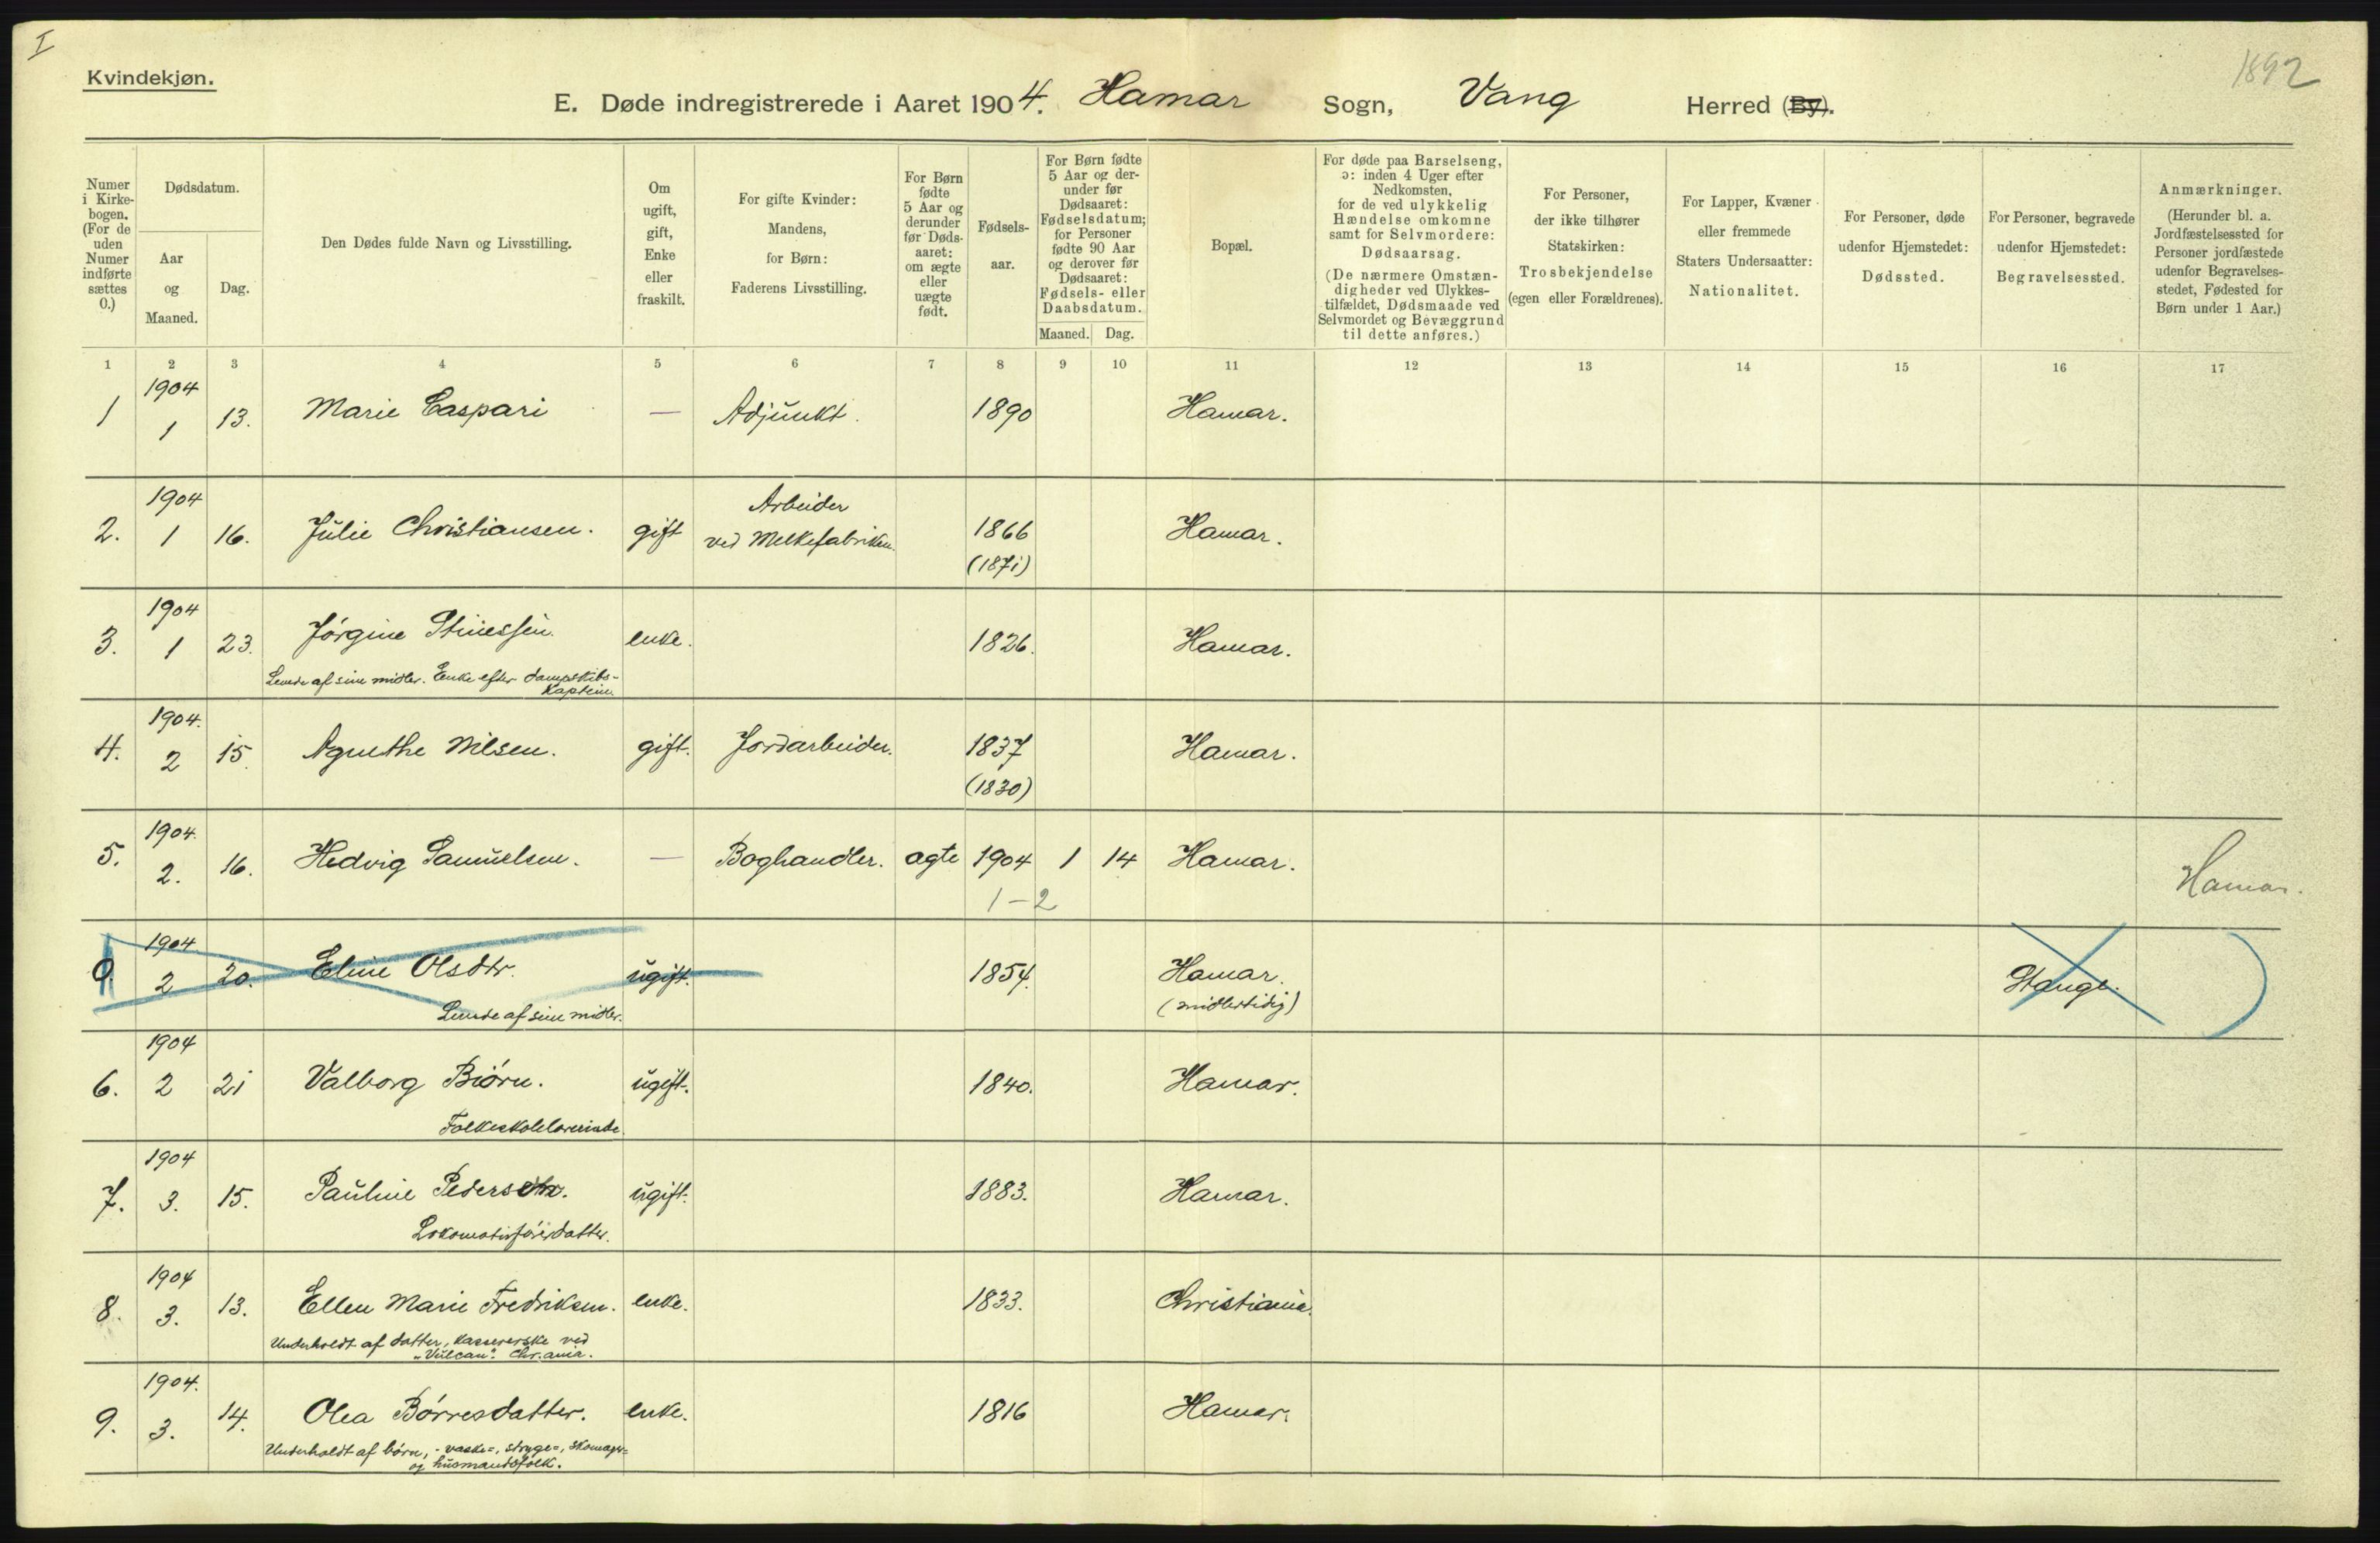 I
1892
Kvindekjøn.
E. Døde indregistrerede i Aaret 1904. Hamar Sogn, Vang Herred (By).
Numer i Kirke-bogen. (For de uden Numer indførte sættes 0.)
Dødsdatum.
Aar og Maaned.
Dag.
Den Dødes fulde Navn og Livsstilling.
Om ugift, gift, Enke eller fraskilt.
For gifte Kvinder: Mandens, for Børn: Faderens Livsstilling.
For Børn fødte 5 Aar og derunder før Døds-aaret: om ægte eller uægte født.
Fødsels-aar.
For Børn fødte 5 Aar og der-under før Dødsaaret: Fødselsdatum; for Personer fødte 90 Aar og derover før Dødsaaret: Fødsels- eller Daabsdatum.
Maaned. Dag.
Bopæl.
For døde paa Barselseng, ɔ: inden 4 Uger efter Nedkomsten, for de ved ulykkelig Hændelse omkomne samt for Selvmordere: Dødsaarsag. (De nærmere Omstæn-digheder ved Ulykkes-tilfældet, Dødsmaade ved Selvmordet og Bevæggrund til dette anføres.)
For Personer, der ikke tilhører Statskirken: Trosbekjendelse (egen eller Forældrenes).
For Lapper, Kvæner eller fremmede Staters Undersaatter: Nationalitet.
For Personer, døde udenfor Hjemstedet: Dødssted.
For Personer, begravede udenfor Hjemstedet: Begravelsessted.
Anmærkninger. (Herunder bl. a. Jordfæstelsessted for Personer jordfæstede udenfor Begravelses-stedet, Fødested for Børn under 1 Aar.)
1 2 3 4 5 6 7 8 9 10 11 12 13 14 15 16 17
1904
1 1 13. Marie Caspari — Adjunkt. 1890 Hamar.
1904 Arbeider
2. 1 16. Julie Christiansen. gift ved Melkefabriken. 1866 Hamar.
(1871)
1904
3. 1 23. Jørgine Stinessen. enke. 1826. Hamar.
Levede af sine midler. Enke efter dampskibs-
Kaptein.
1904.
4. 2 15. Agnethe Nilsen. gift. Jordarbeider. 1837 Hamar.
(1830)
1904.
5. 2. 16. Hedvig Samuelsen. — Boghandler. ægte 1904 1 14 Hamar. Hamar.
1-2
1904
0 2 20. Eline Olsdtr. ugift. 1854. Hamar. Stange.
Levede af sine midler. (midlertidig)
1904
6. 2 21 Valborg Biørn. ugift. 1840. Hamar.
Folkeskolelærerinde.
1904
7. 3. 15. Pauline Pedersen. ugift. 1883. Hamar.
Lokomotivførerdatter.
1904
8. 3. 13. Ellen Marie Fredriksen. enke. 1833. Christiania.
Underholdt af datter, kassererske ved
"Vulcan". Chr.ania.
1904.
9. 3. 14. Olea Børresdatter. enke. 1816 Hamar.
Underholdt af børn, - vaske=, stryge=, skomager=
og husmandsfolk.